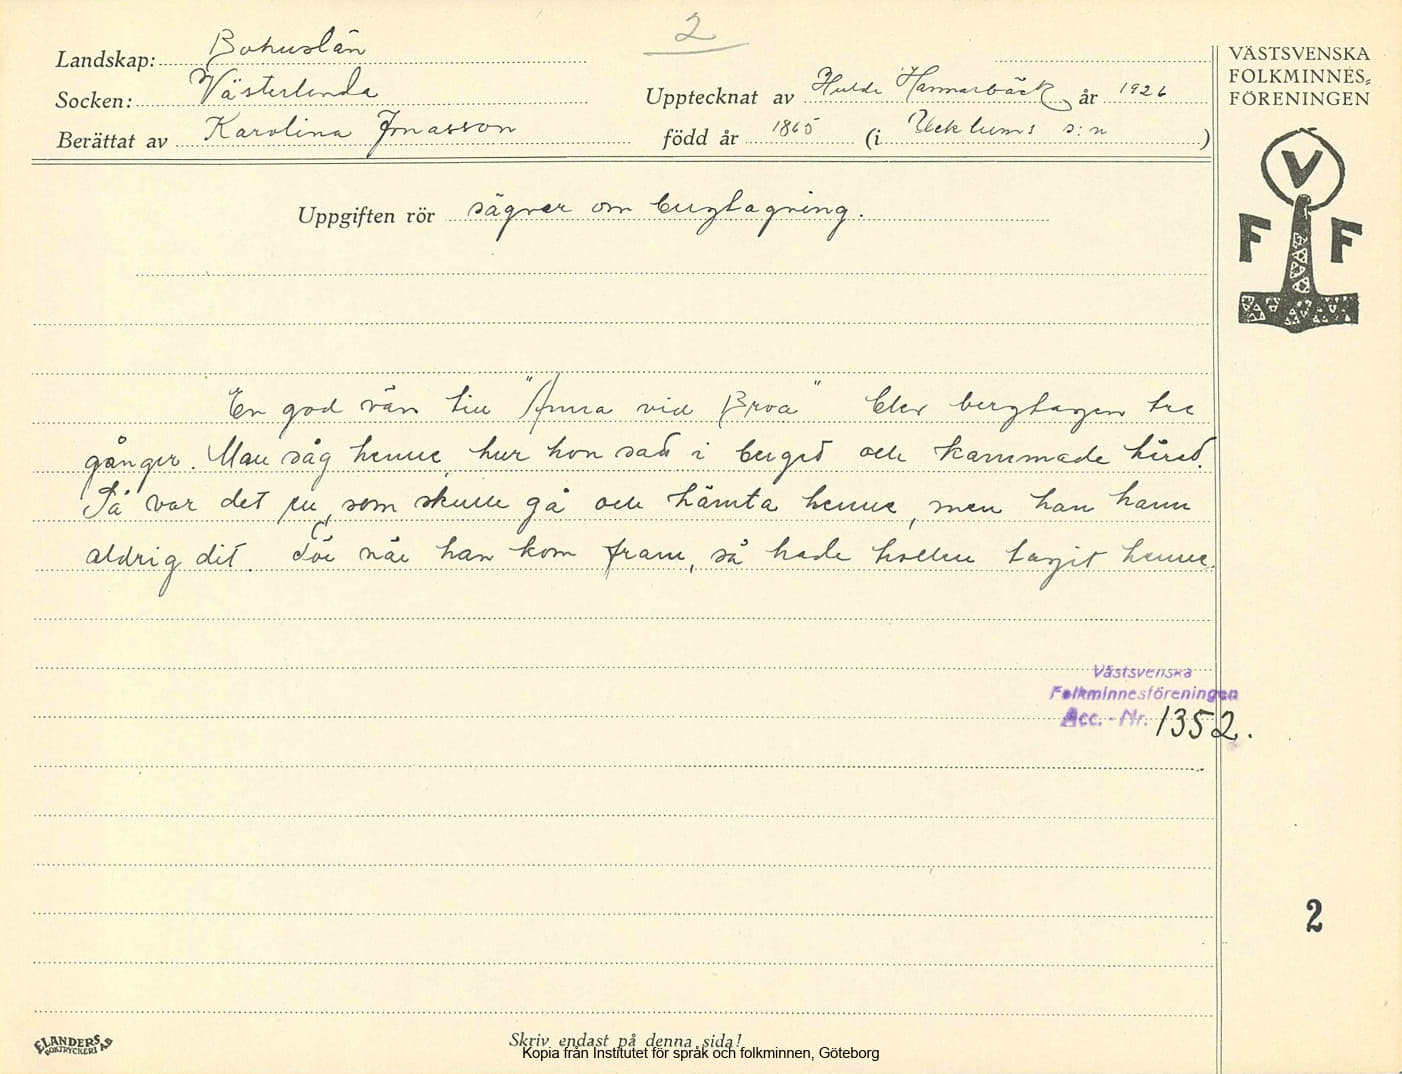 2
Landskap: Bohuslän
VÄSTSVENSKA
FOLKMINNES-
FÖRENINGEN
Socken: Västerlanda
Upptecknat av Hulda Hammarbäck år 1926
Berättat av Karolina Jonasson
född år 1865 (i Ucklums s:n )
V
F F
Uppgiften rör sägner om bergtagning.
En god vän till "Anna vid Broa" blev bergtagen tre
gånger. Man såg henne, hur hon satt i berget och kammade håret.
Så var det en, som skulle gå och hämta henne, men han hann
aldrig dit. För när han kom fram, så hade trollen tagit henne.
Västsvenska
Folkminnesföreningen
Acc. - Nr. 1352.
2
ELANDERS
BOKTRYCKERI AB
Skriv endast på denna sida!
Kopia från Institutet för språk och folkminnen, Göteborg